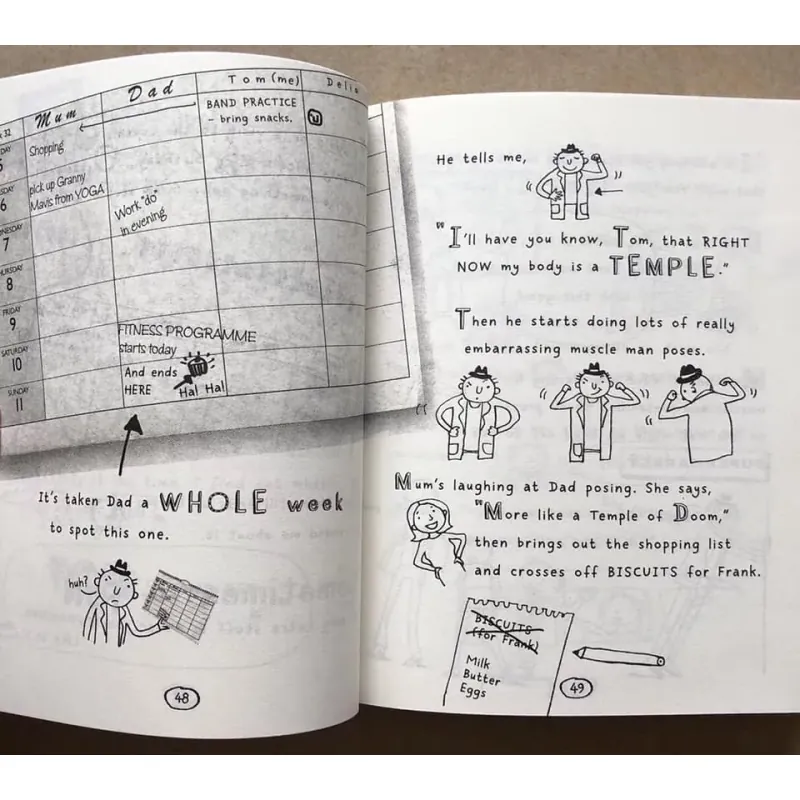 Mum
Dad
Tom (me)
Delia
32
BAND PRACTICE
- bring snacks.
Shopping
pick up Granny
Mavis from YOGA
6
Work "do"
in evening
7
8
FRIDAY
9
FITNESS PROGRAMME
starts today
SATURDAY
10
And ends
HERE
Ha! Ha!
SUNDAY
11
It's taken Dad a WHOLE week
to spot this one.
huh?
48
He tells me,
"I'll have you know, Tom, that RIGHT
NOW my body is a TEMPLE."
Then he starts doing lots of really
embarrassing muscle man poses.
Mum's laughing at Dad posing. She says,
"More like a Temple of Doom,"
then brings out the shopping list
and crosses off BISCUITS for Frank.
BISCUITS
(for Frank)
Milk
Butter
Eggs
49